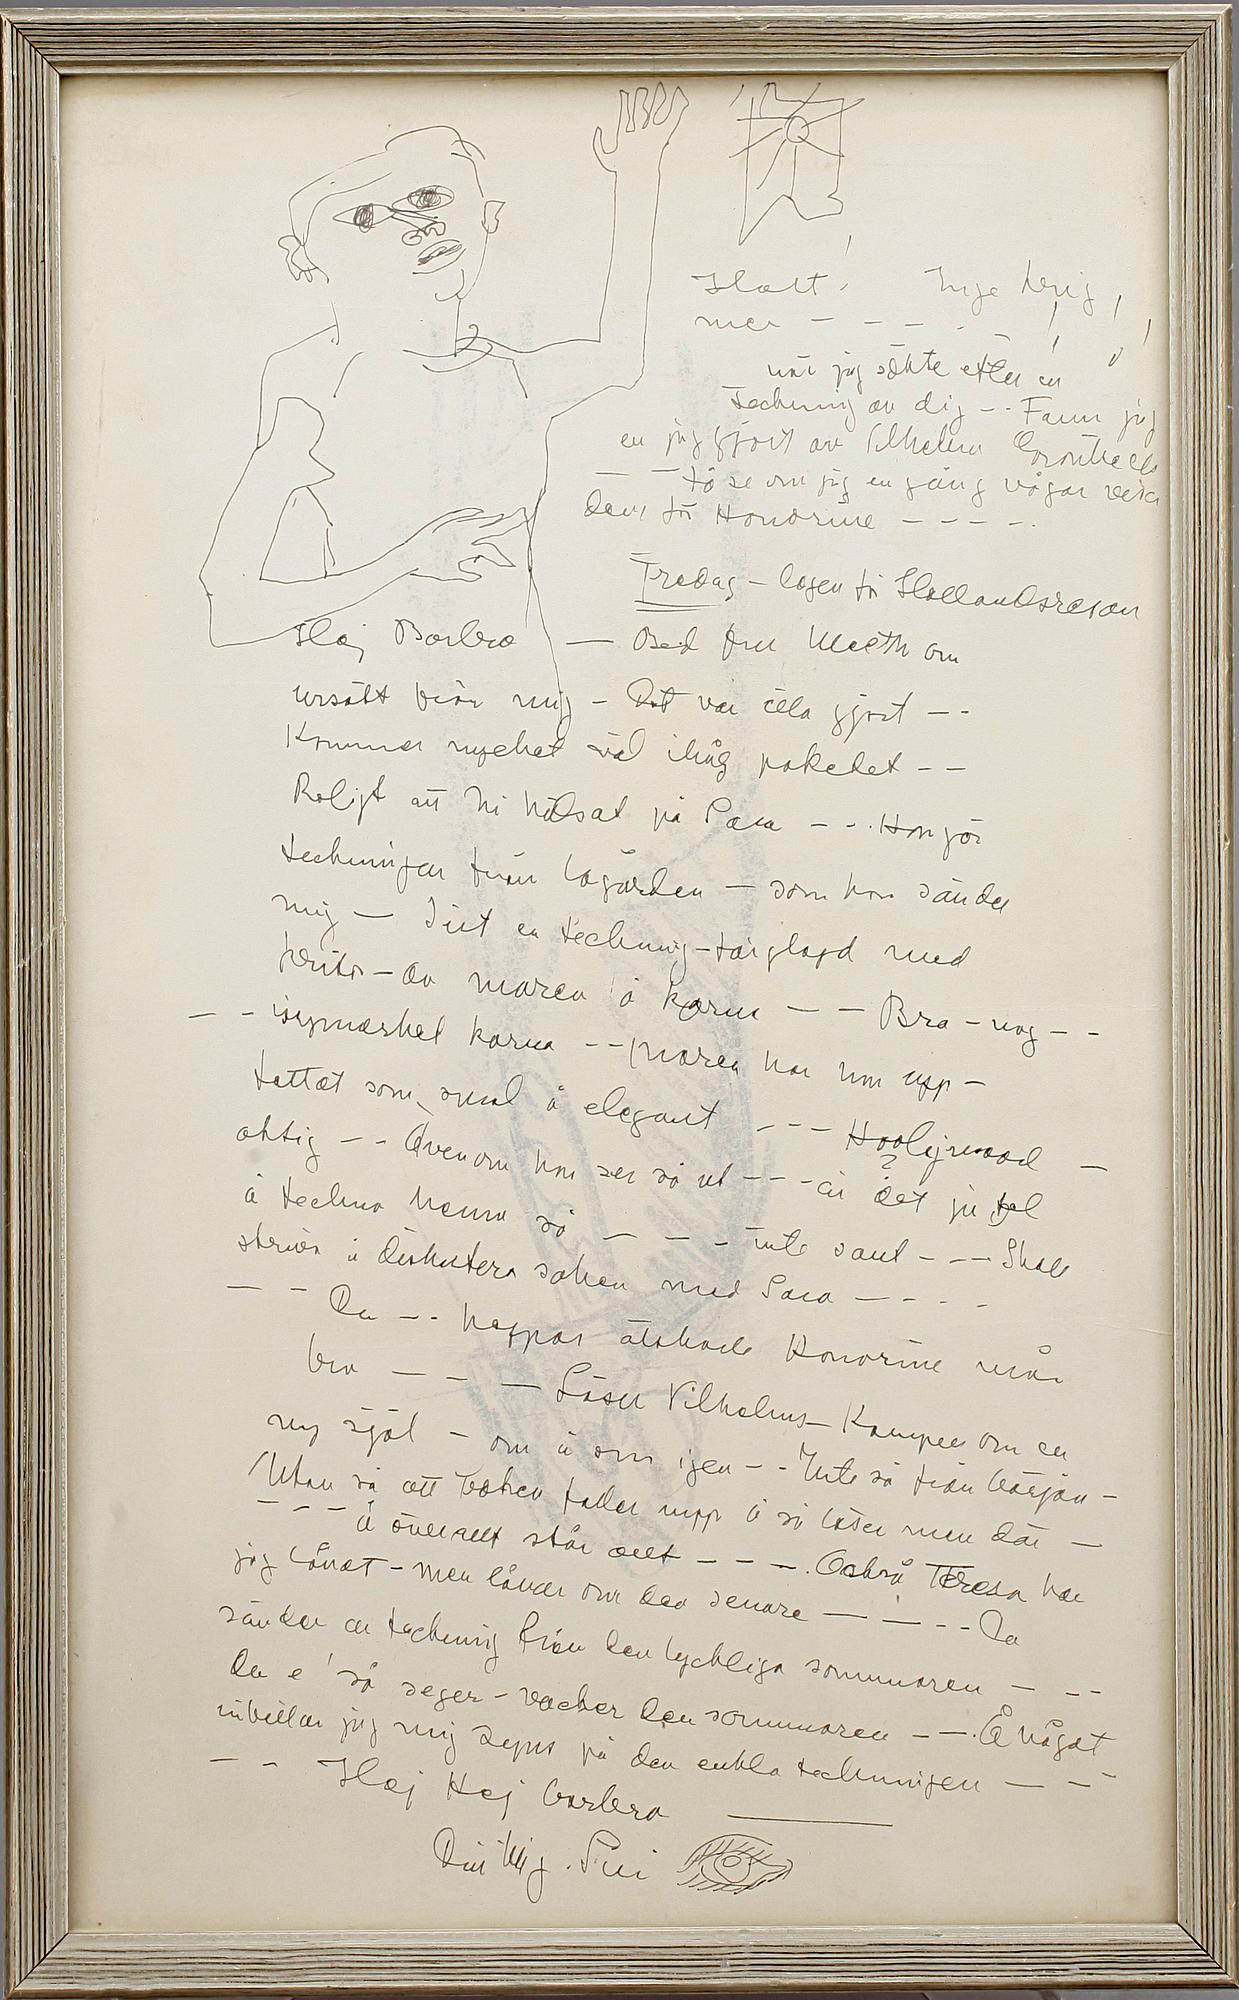 Halt! Inga krig!
mer - - - - - - ! ! !
när jag sökte efter en
teckning av dig - - Fann jag
en jag gjort av Vilhelm
— — få se om jag en gång vågar visa
den för Honorine - - - - -
Fredag - dagen för Hollandsresan
Hej Barbro — Bed fru om
ursäkt från mig - Det var illa gjort - -
Kommer mycket väl ihåg paketet - -
Roligt att Ni hälsat på Sara - - - Hon gör
teckningar från lagården - som hon sänder
mig — Sist en teckning - färglagd med
krita - av maran å karna - - Bra - nog - -
- - karna - - maran har hon upp-
fattat som smal å elegant - - - Hoolywood -
aktig - - Även om hon ser så ut - - - är det ju fel
å teckna henne så — — — - inte sant - - - Skall
skriva å diskutera saken med Sara — - - -
— — Du - - hoppas älskade Honorine mår
bra — — — Läser Vilhelms - om en
ny själ - om å om igen - - Inte så från början -
Utan så att boken faller upp å så läser men där —
- - - å överallt står allt - - - Också Teresa har
jag lånat - men lånar om den senare — — - - Du
sänder en teckning från den lyckliga sommaren — - -
Du e' så seger - vacker den sommaren - - - Å något
inbillar jag mig syns på den enkla teckningen — - -
- - Hej Hej Barbro ———
Din Siri